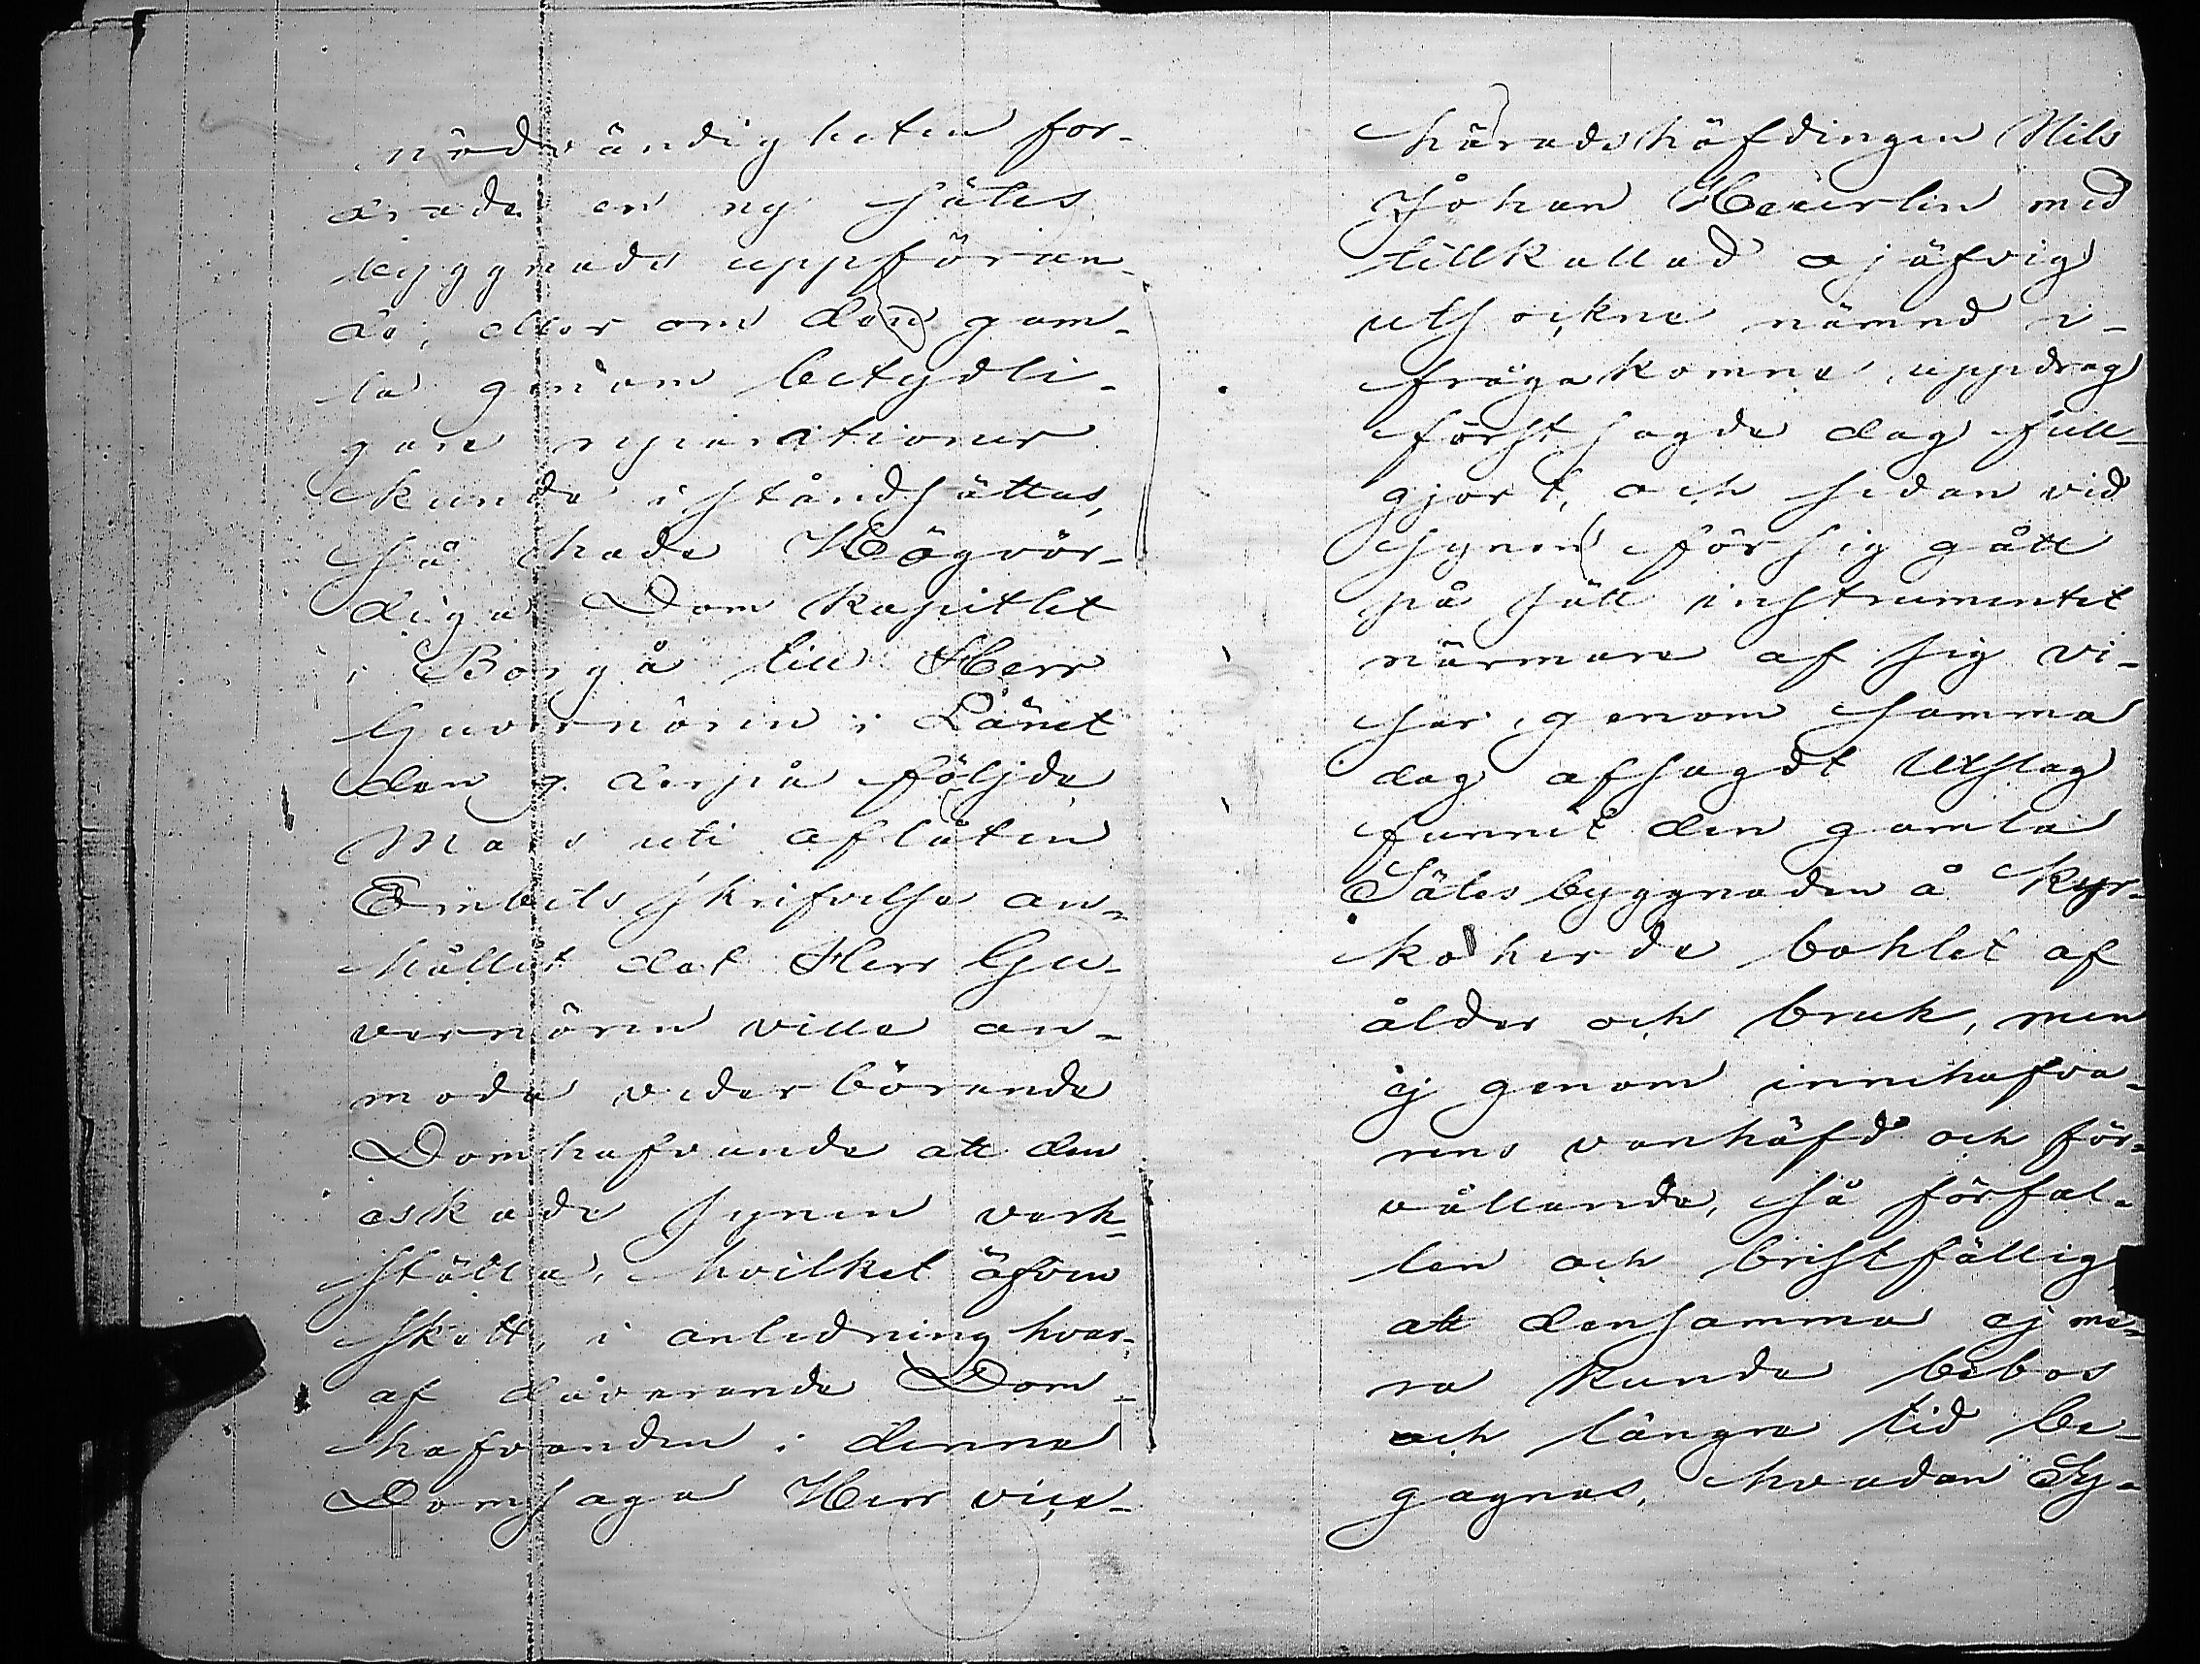 nödvändigheten for-
drade en ny sätes
byggnads uppföran-
de, eller om den gam-
la genom betydli-
gare reparationer
kunde iståndsättas,
så hade Högvör-
diga Dom kapitlet
i Borgå till Herr
Guvernören i Länet
den 9 derpå följde
Mars uti aflåten
Embets skrifvelse an-
hållit det Herr Gu-
vernören ville an-
moda vederbörande
Domhafvande att den
äskade synen verk-
ställa, hvilket äfven
skett, i anledning hvar-
af dåvarande Dom-
hafvanden i denna
Domsaga Herr vice-
häradshöfdingen Nils
Johan Heurlin med
tillkallad ojäfvig
utsockne nämnd i-
frågakomne uppdrag
förstsagde dag full-
gjort, och sedan vid
synen försiggått
på sätt instrumentet
närmare af sig vi-
sar, genom samma
dag afsagdt Utslag
funnit den gamla
Sätesbyggnaden å Kyr-
koherde bohlet af
ålder och bruk, men
ej genom innehafva-
rens vanhäfd och för-
vållande, så förfal-
len och bristfällig
att densamma ej me-
ra kunde bebos
och längre tid be-
gagnas, hvadan Sy-